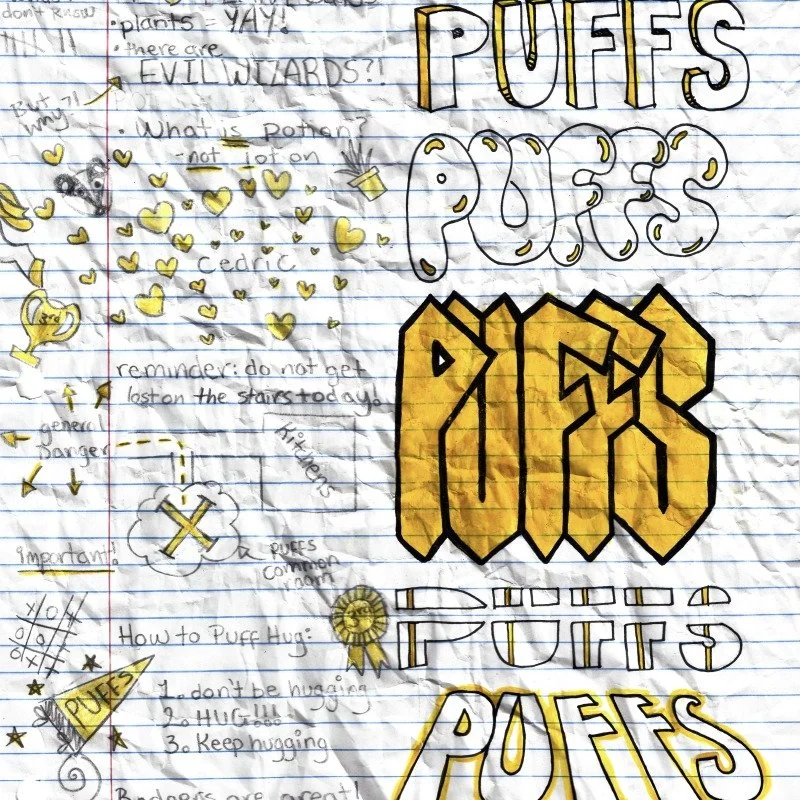 don't know
• plants = YAY!
• there are
EVIL WIZARDS?!
But why?!
• What is potion?
- not lot on
Cedric
3rd
reminder: do not get
lost on the stairs today!
general
Danger
Kitchens
X
PUFFS
common
room
important!
How to Puff Hug:
1. don't be hugging
2. HUG!!!
3. Keep hugging
PUFFS
Badgers are great!
3rd
PUFFS
PUFFS
PUFFS
PUFFS
PUFFS